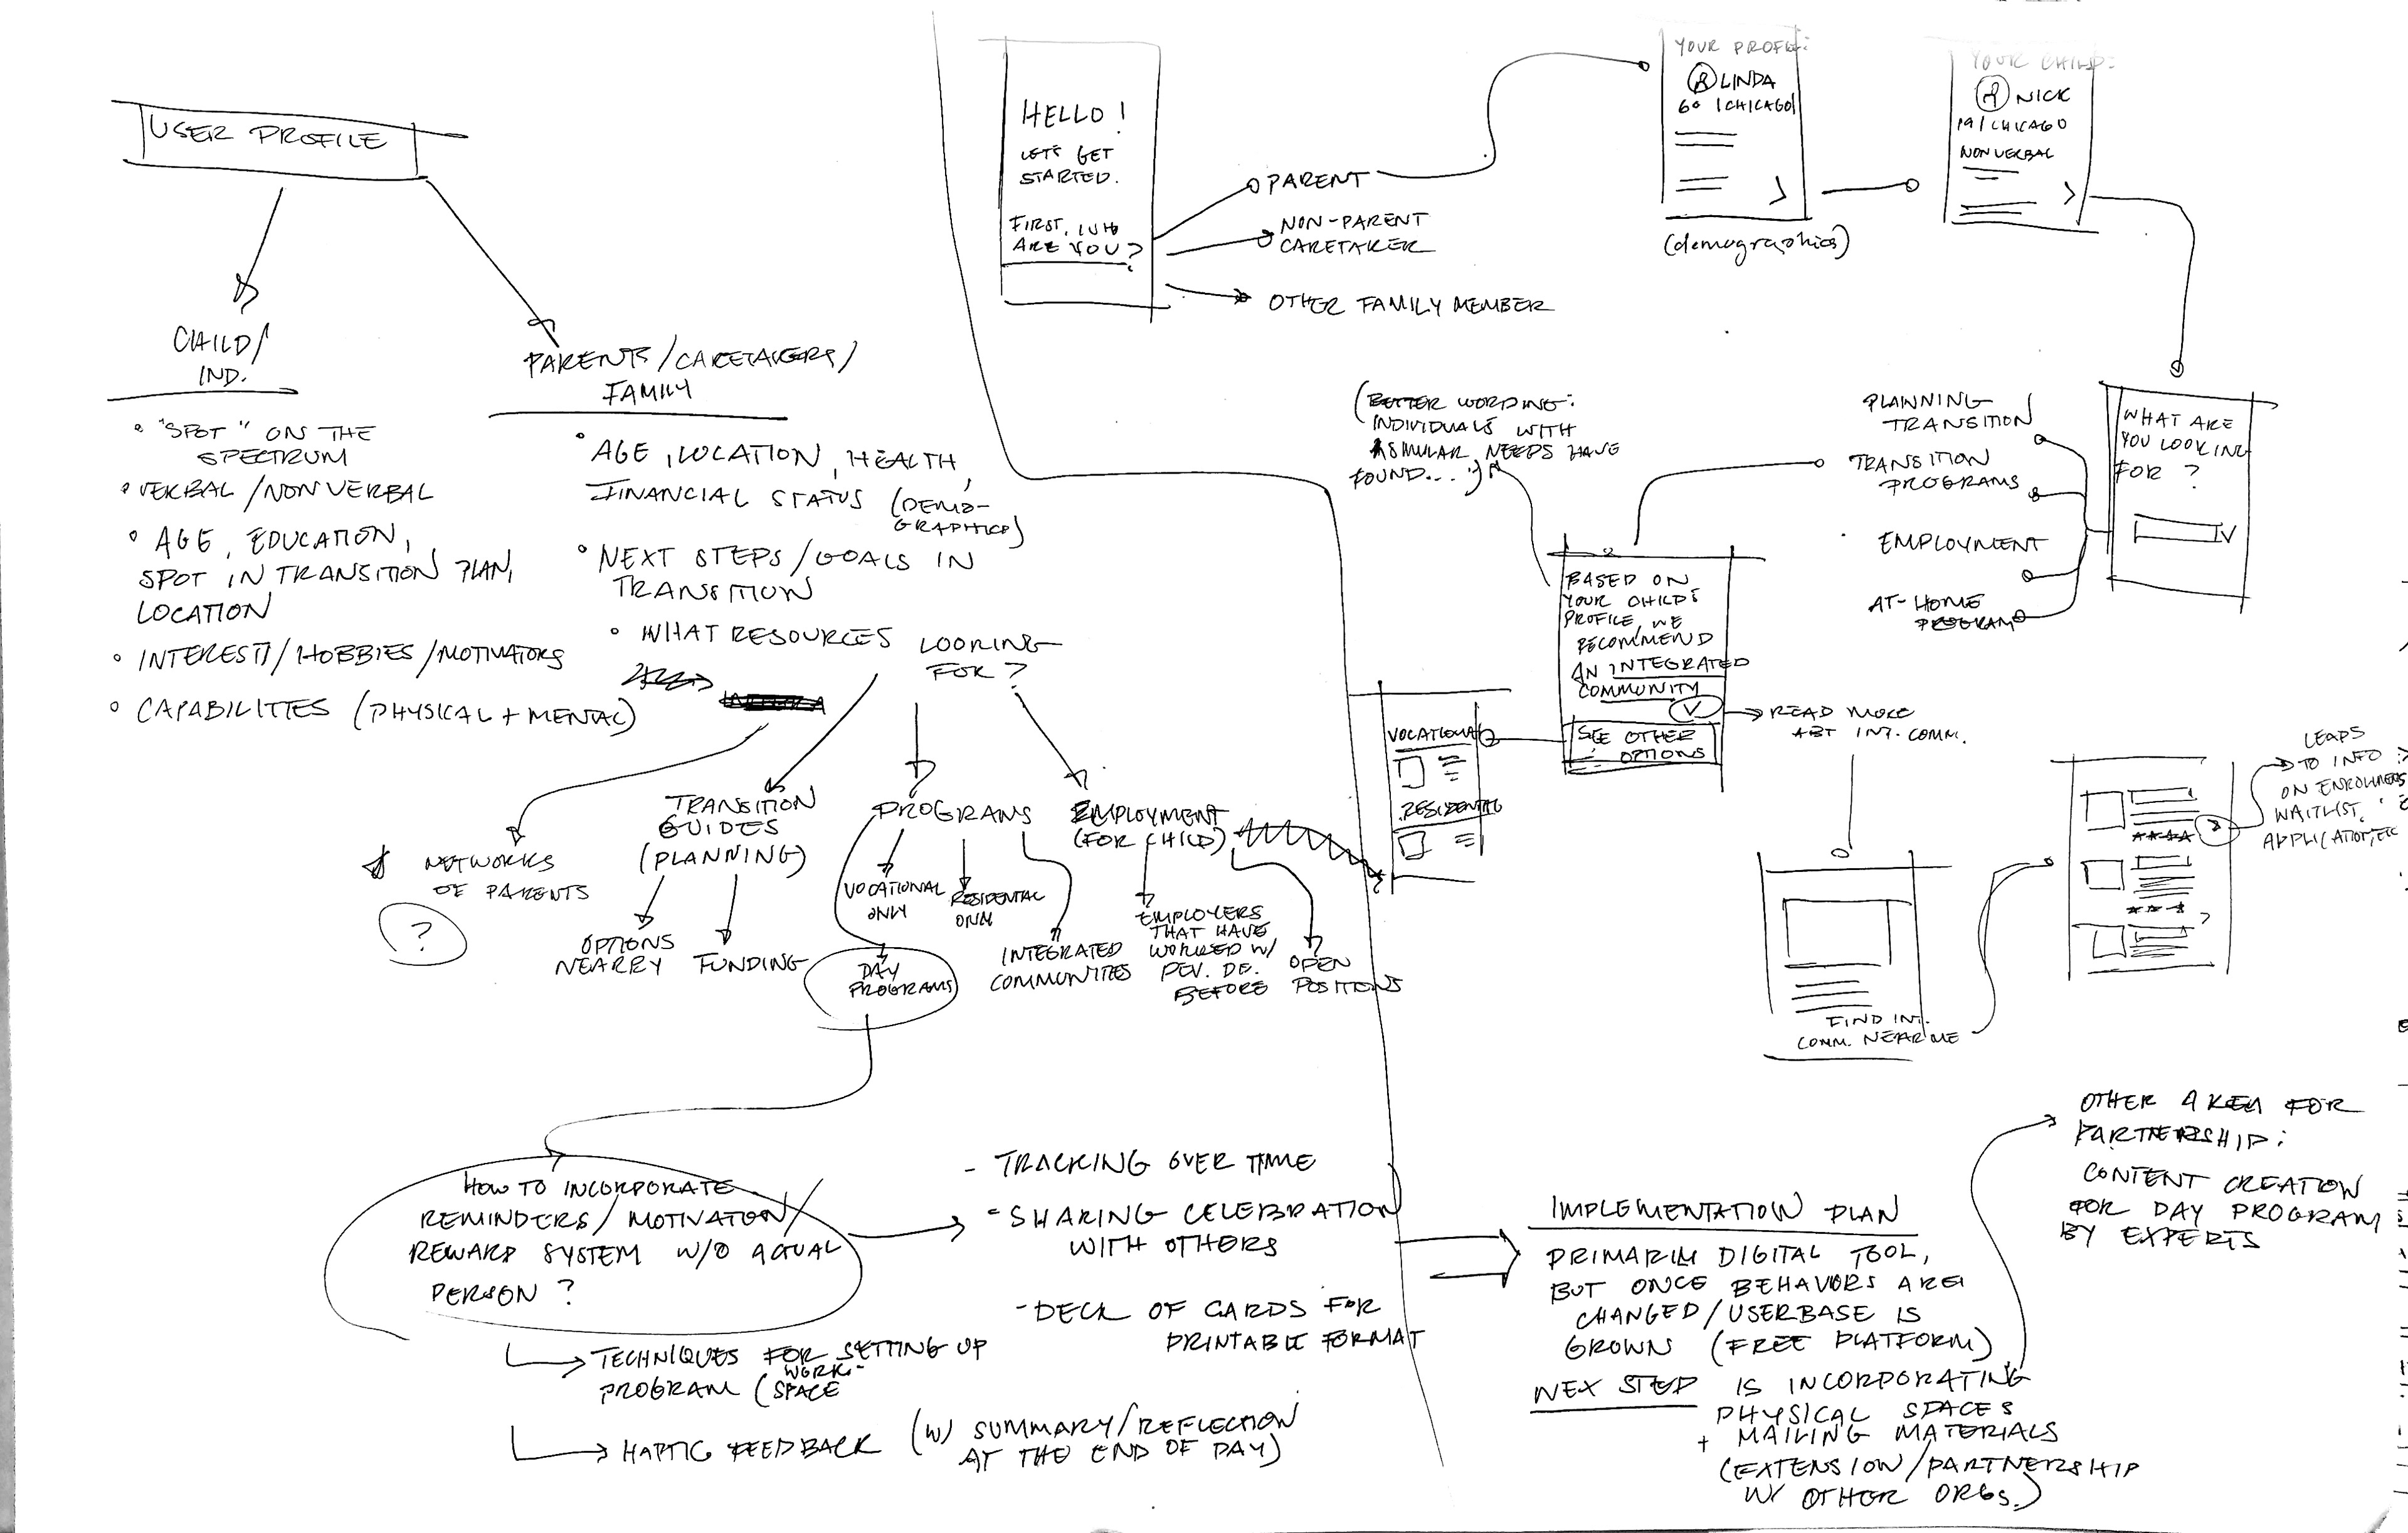 USER PROFILE
CHILD/
IND.
• "SPOT" ON THE
SPECTRUM
• VERBAL/NONVERBAL
• AGE, EDUCATION,
SPOT IN TRANSITION PLAN,
LOCATION
• INTERESTS/HOBBIES/MOTIVATORS
• CAPABILITIES (PHYSICAL + MENTAL)
PARENTS/CARETAKERS/
FAMILY
• AGE, LOCATION, HEALTH,
FINANCIAL STATUS (DEMO-
GRAPHICS)
• NEXT STEPS/GOALS IN
TRANSITION
• WHAT RESOURCES LOOKING
FOR?
NETWORKS
OF PARENTS
?
TRANSITION
GUIDES
(PLANNING)
OPTIONS
NEARBY
FUNDING
PROGRAMS
VOCATIONAL
ONLY
RESIDENTIAL
ONLY
DAY
PROGRAMS
INTEGRATED
COMMUNITIES
EMPLOYMENT
(FOR CHILD)
EMPLOYERS
THAT HAVE
WORKED W/
DEV. DE.
BEFORE
OPEN
POSITIONS
HOW TO INCORPORATE
REMINDERS/MOTIVATION/
REWARD SYSTEM W/O ACTUAL
PERSON?
TECHNIQUES FOR SETTING UP
PROGRAM (WORK-
SPACE
HAPTIC FEEDBACK (W/ SUMMARY/REFLECTION
AT THE END OF DAY)
- TRACKING OVER TIME
- SHARING CELEBRATION
WITH OTHERS
- DECK OF CARDS FOR
PRINTABLE FORMAT
HELLO!
LETS GET
STARTED.
FIRST, WHO
ARE YOU?
PARENT
NON-PARENT
CARETAKER
OTHER FAMILY MEMBER
YOUR PROFILE:
LINDA
60 | CHICAGO
(demographics)
YOUR CHILD:
NICK
19/CHICAGO
NONVERBAL
WHAT ARE
YOU LOOKING
FOR?
PLANNING
TRANSITION
TRANSITION
PROGRAMS
EMPLOYMENT
AT-HOME
PROGRAM
(BETTER WORDING:
INDIVIDUALS WITH
SIMILAR NEEDS HAVE
FOUND...")
BASED ON
YOUR CHILD'S
PROFILE, WE
RECOMMEND
AN INTEGRATED
COMMUNITY
SEE OTHER
OPTIONS
VOCATIONAL
RESIDENTIAL
READ MORE
ABT INT. COMM.
FIND INT.
COMM. NEAR ME
LEADS
TO INFO
ON ENROLLMENT
WAITLIST,
APPLICATION, ETC
IMPLEMENTATION PLAN
PRIMARILY DIGITAL TOOL,
BUT ONCE BEHAVIORS ARE
CHANGED/USERBASE IS
GROWN (FREE PLATFORM)
NEX STEP IS INCORPORATING
PHYSICAL SPACES
+ MAILING MATERIALS
(EXTENSION/PARTNERSHIP
W/ OTHER ORGS.)
OTHER AREA FOR
PARTNERSHIP:
CONTENT CREATION
FOR DAY PROGRAM
BY EXPERTS